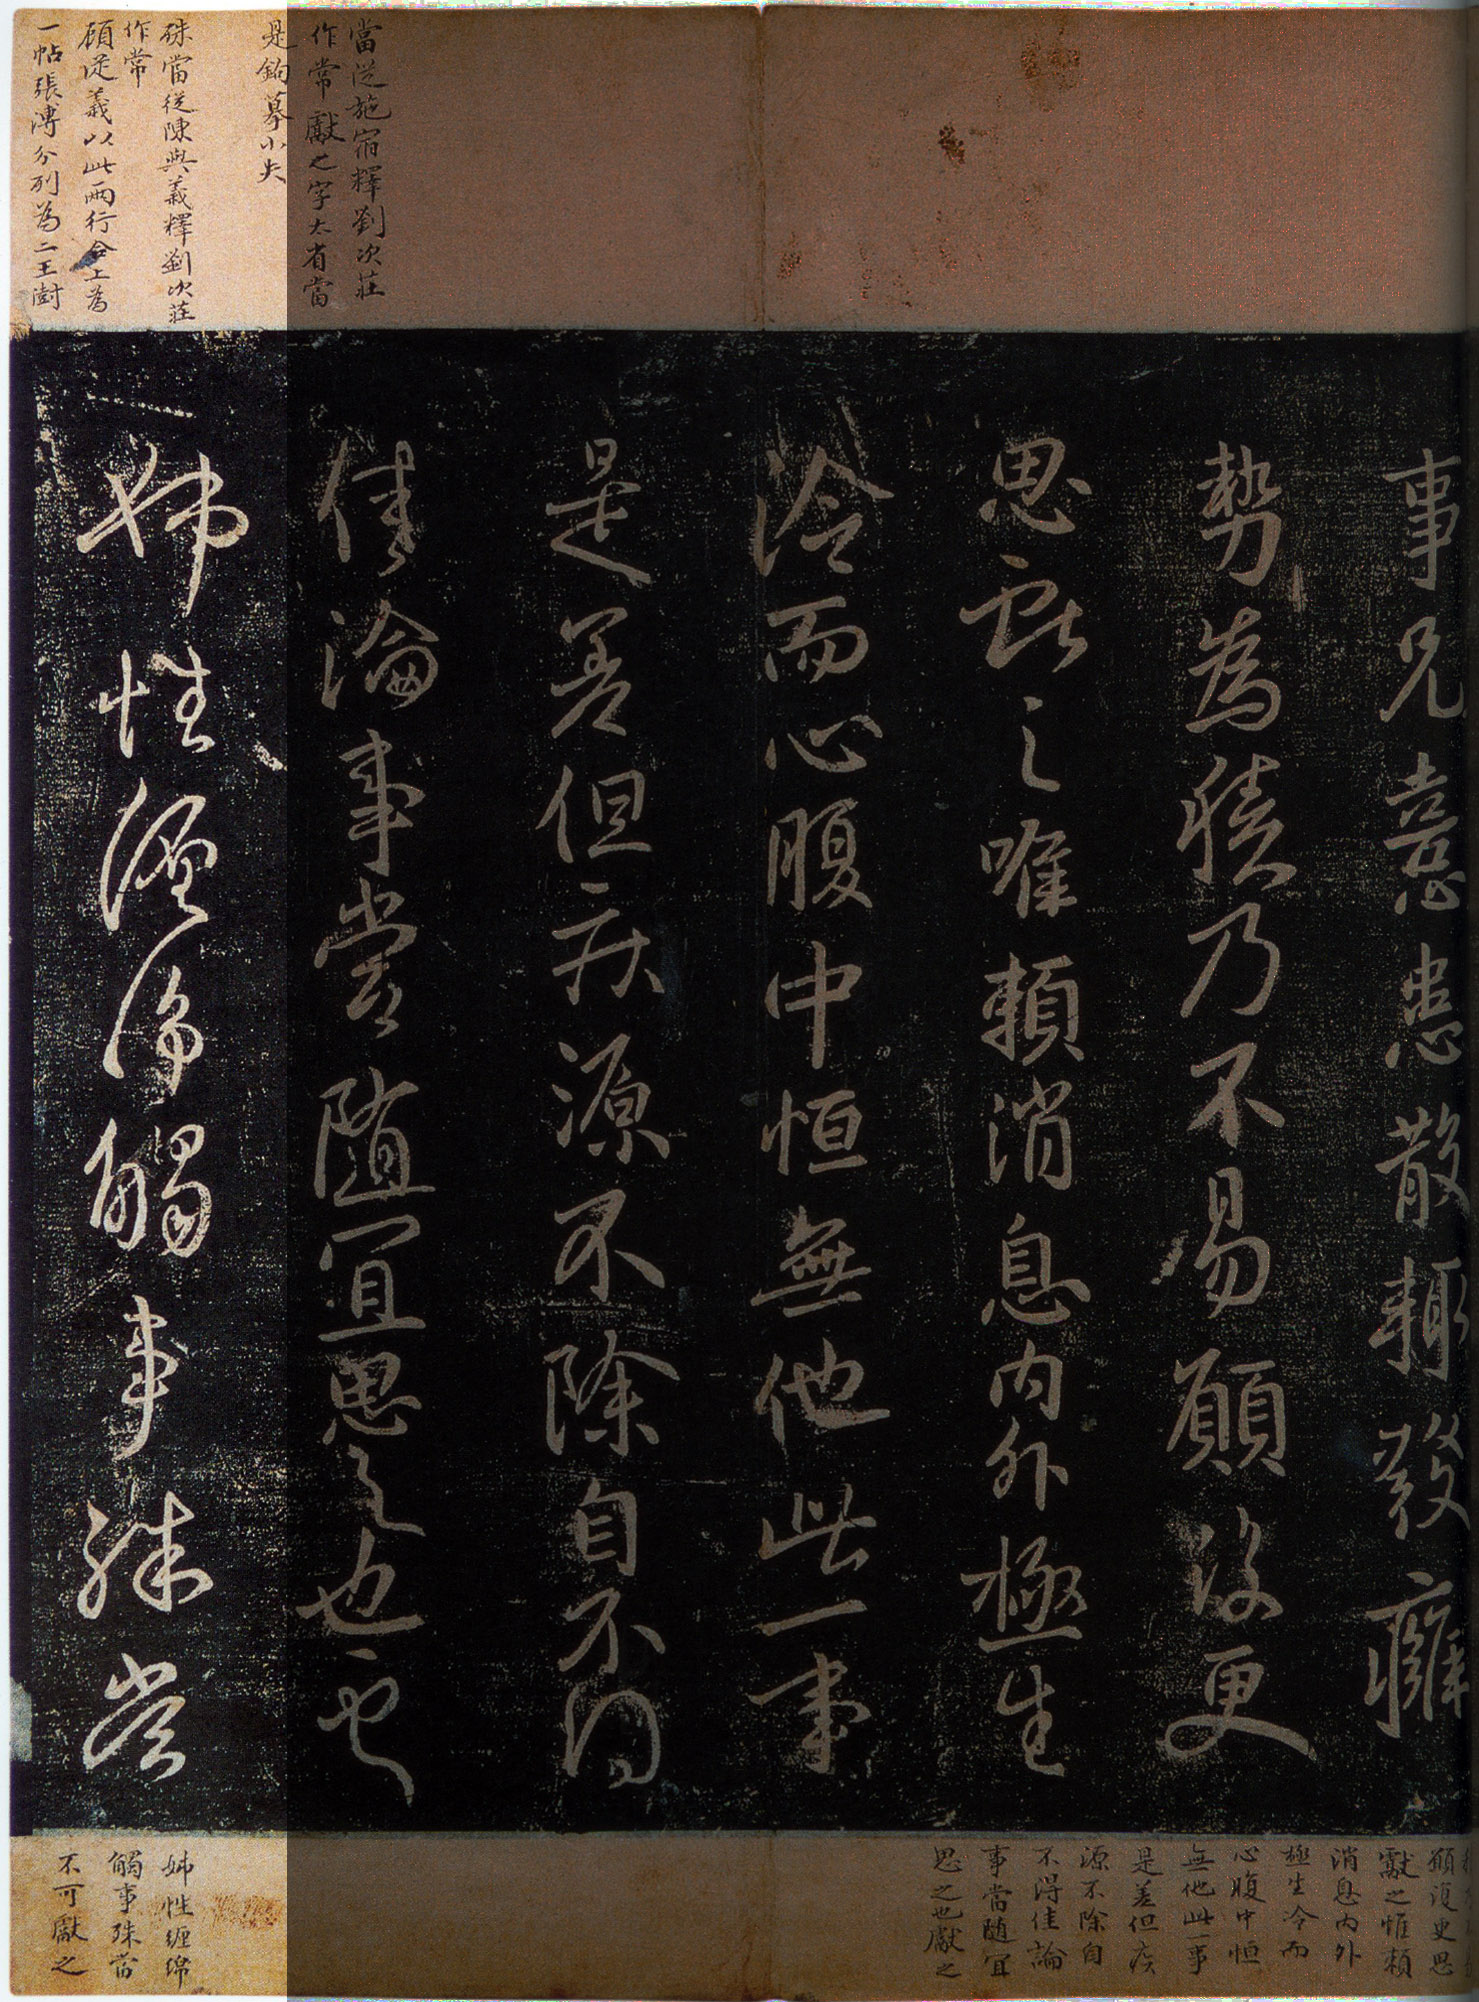 當從施宿釋劉次莊
作常獻之字太省當
是鉤摹小失
殊當從陳與義釋劉次莊
作常
顧從義以此兩行合上為
一帖張溥分列為二王澍
事兄意患散輒發癰
勢為積乃不易願復更
思獻之唯賴消息內外極生
冷而心腹中恒無他此一事
是差但疾源不除自不得
佳論事當隨宜思之也
姊性纏綿觸事殊當
願復更思
獻之惟賴
消息內外
極生冷而
心腹中恒
無他此一事
是差但疾
源不除自
不得佳論
事當隨宜
思之也獻之
姊性纏綿
觸事殊當
不可獻之